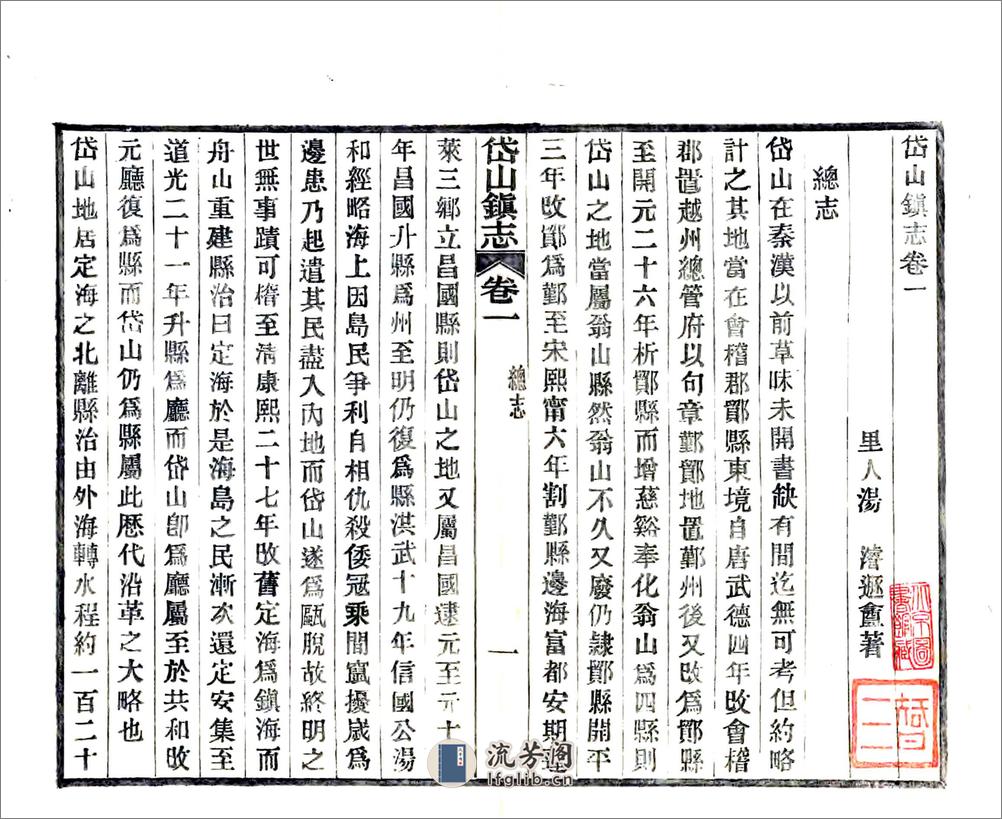 岱山鎮志卷一
里人湯濬遯盦著
總志
岱山在秦漢以前草昧未開書缺有間迄無可考但約略
計之其地當在會稽郡鄮縣東境自唐武德四年改會稽
郡置越州總管府以句章鄞鄮地置鄞州後又改爲鄮縣
至開元二十六年析鄮縣而增慈谿奉化翁山爲四縣則
岱山之地當屬翁山縣然翁山不久又廢仍隸鄮縣開平
三年改鄮爲鄞至宋熙甯六年割鄞縣邊海富都安期蓬
岱山鎮志 卷一 總志 一
萊三鄉立昌國縣則岱山之地又屬昌國逮元至元十
年昌國升縣爲州至明仍復爲縣洪武十九年信國公湯
和經略海上因島民爭利自相仇殺倭冦乘間竄擾歲爲
邊患乃起遣其民盡入內地而岱山遂爲甌脫故終明之
世無事蹟可稽至淸康熙二十七年改舊定海爲鎮海而
舟山重建縣治曰定海於是海島之民漸次還定安集至
道光二十一年升縣爲廳而岱山卽爲廳屬至於共和改
元廳復爲縣而岱山仍爲縣屬此歷代沿革之大略也
岱山地居定海之北離縣治由外海轉水程約一百二十
流芳閣
lfglib.cn